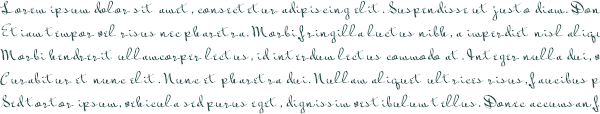 Lorem ipsum dolor sit amet, consectetur adipiscing elit. Suspendisse ut justo diam. Don
Etiam tempor vel risus nec pharetra. Morbi fringilla luctus nibh, a imperdiet nisl aliqu
Morbi hendrerit ullamcorper lectus, id interdum lectus commodo at. Integer nulla dui,
Curabitur et nunc elit. Nunc et pharetra dui. Nullam aliquet ultrices risus, faucibus
Sed tortor ipsum, vehicula sed purus eget, dignissim vestibulum tellus. Donec accumsan